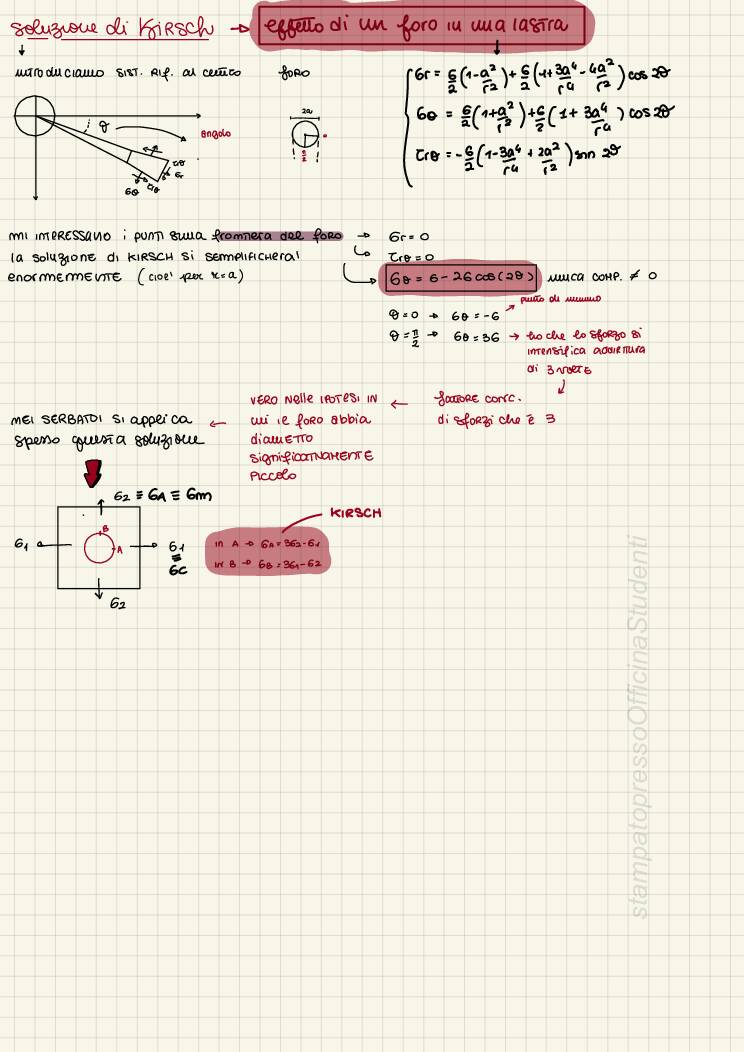 soluzione di Kirsch → effetto di un foro in una lastra
introduciamo SIST. RIF. al centro FORO
σr = σ/2 (1 - a²/r²) + σ/2 (1 + 3a⁴/r⁴ - 4a²/r²) cos 2θ
σθ = σ/2 (1 + a²/r²) + σ/2 (1 + 3a⁴/r⁴) cos 2θ
τrθ = - σ/2 (1 - 3a⁴/r⁴ + 2a²/r²) sin 2θ
θ
angolo
τrθ
σr
σθ
τrθ
2a
MI INTERESSANO i PUNTI SULLA frontiera del foro → σr = 0
la soluzione di KIRSCH SI SEMPLIFICHERA' τrθ = 0
ENORMEMENTE (cioe' per r=a) → σθ = σ - 2σ cos(2θ) unica comp. ≠ 0
punto di minimo
θ = 0 → σθ = -σ
θ = π/2 → σθ = 3σ → ho che lo sforzo si
intensifica addirittura
di 3 volte
fattore conc.
di sforzi che è 3
←
VERO nelle IPOTESI IN
cui il foro abbia
diametro
significativamente
piccolo
←
NEI SERBATOI SI applica
spesso questa soluzione
σ2 ≡ σA ≡ σm
σ1
B
A
σ1
≡
σc
σ2
KIRSCH
IN A → σA = 3σ2 - σ1
IN B → σB = 3σ1 - σ2
stampatopressoOfficinaStudenti